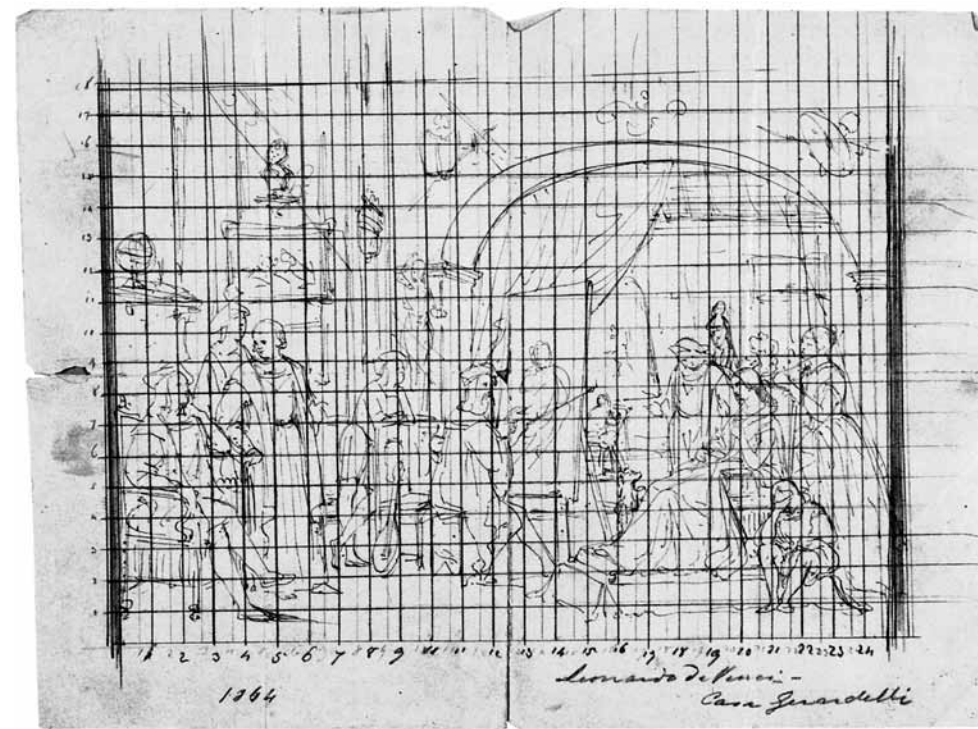 18
17
16
15
14
13
12
11
10
9
8
7
6
5
4
3
2
1
1 2 3 4 5 6 7 8 9 10 12 13 14 15 16 17 18 19 20 21 22 23 24
1864
Leonardo da Vinci -
Casa Gerardelli